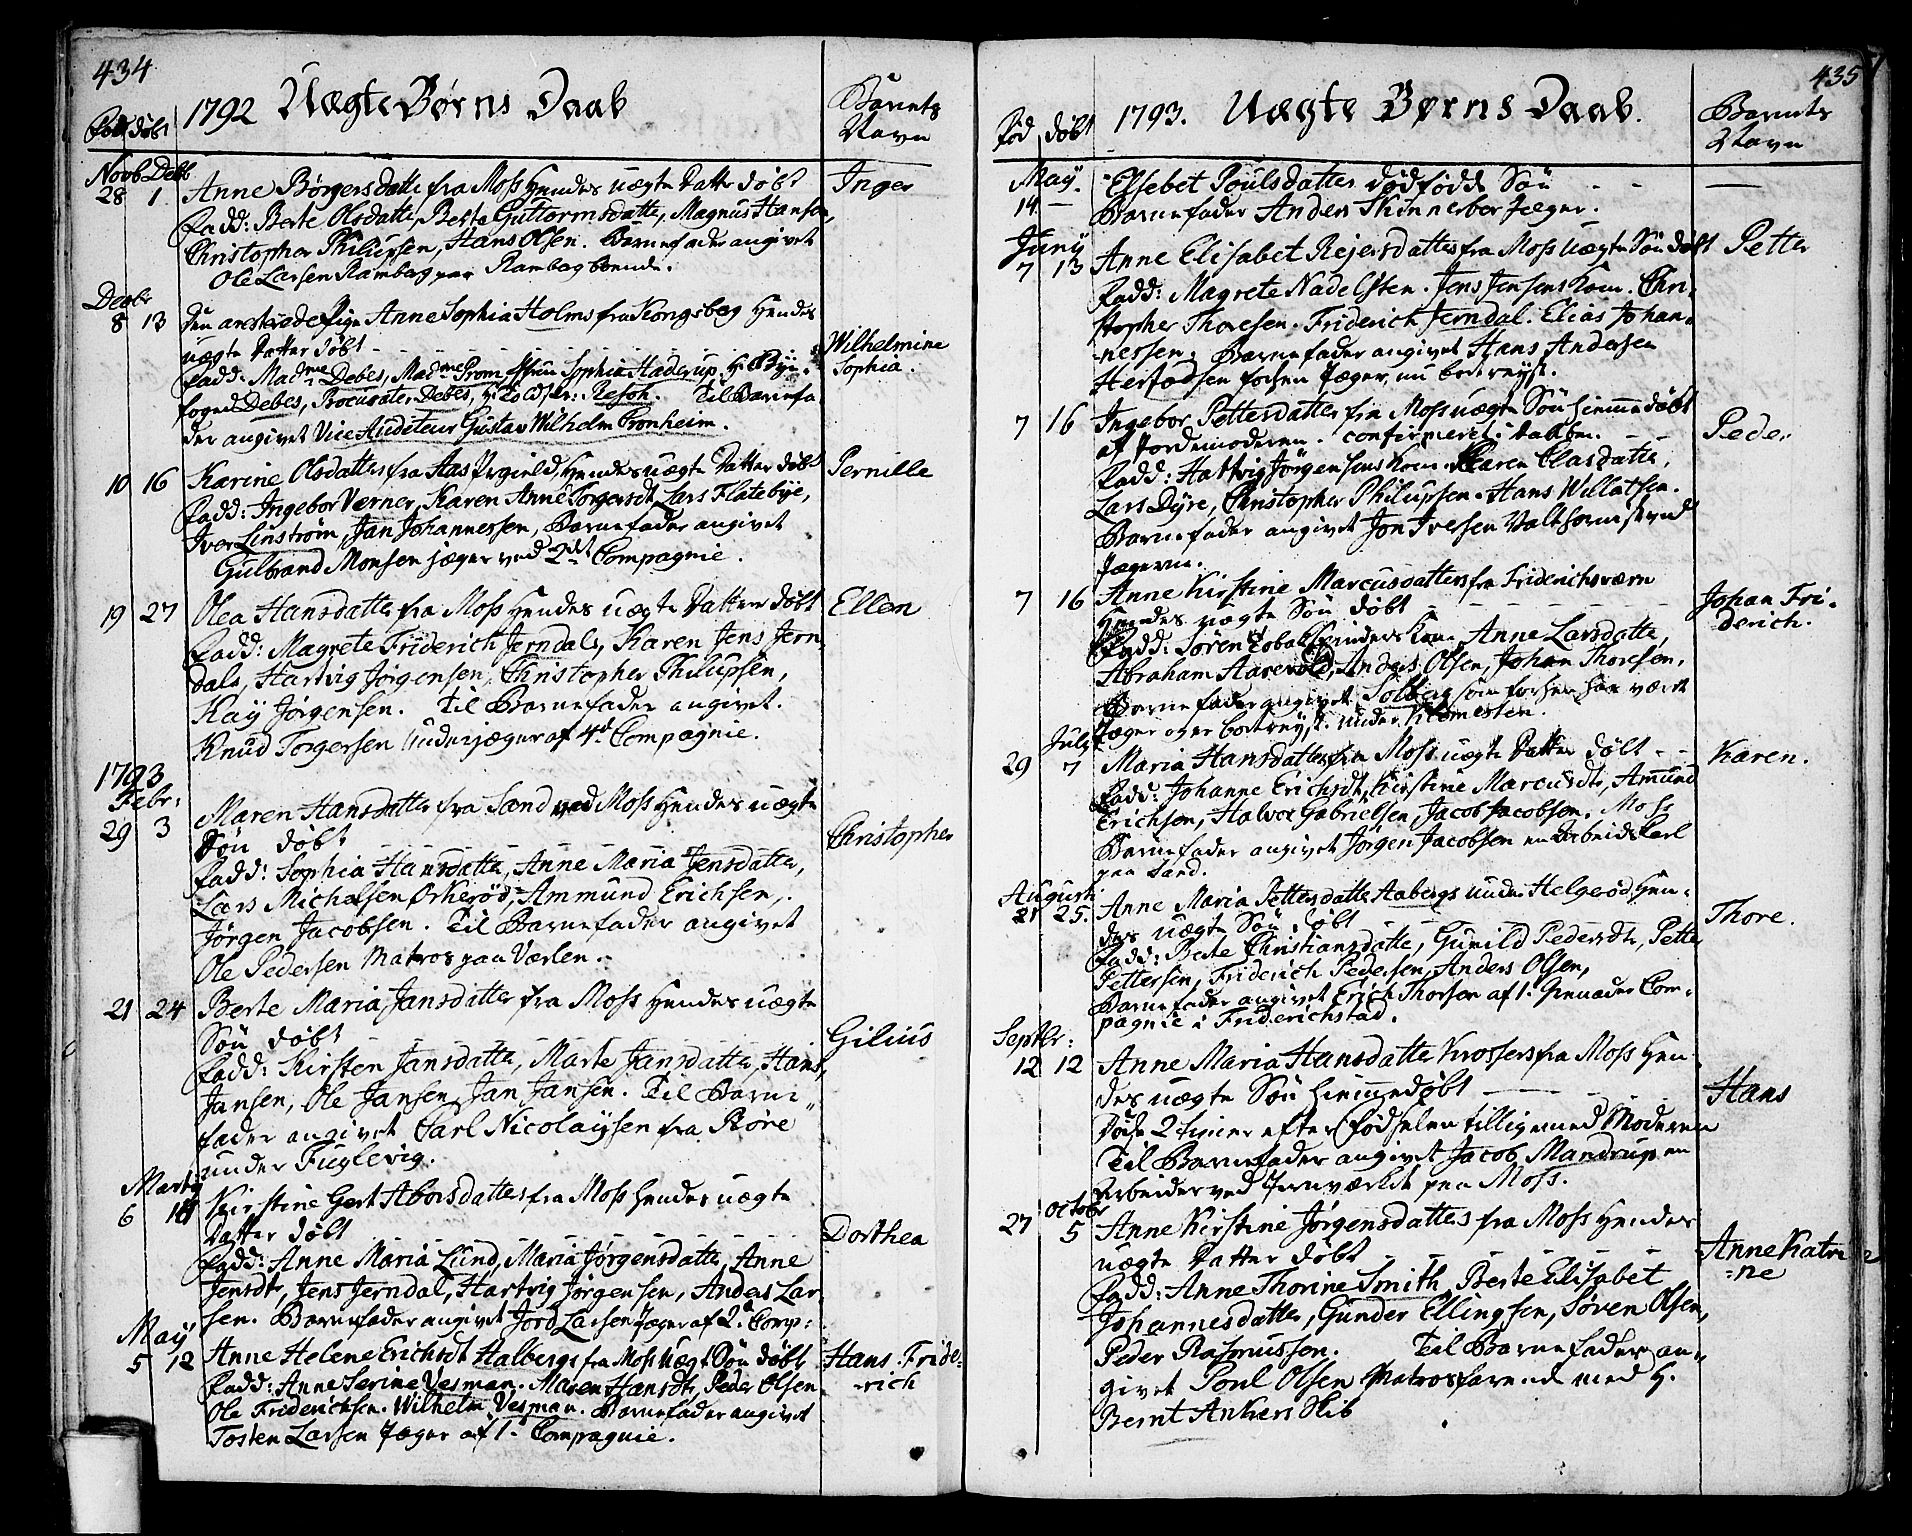 434
1792 Uægte Børns Daab
Barnets
Navn
Fød døbt
Novb Debb
28 1 Anne Børgersdatter fra Moss Hendes uægte Datter døbt Inger
Fadd: Berte Olsdatter, Berte Guttormsdatte, Magnus Hansen,
Christopher Philupsen, Hans Olsen. Barnefader angivet
Ole Larsen Rambøg paa Rambøg boende.
Decbr
8 13 Den ansterede Pige Anne Sophia Holms fra Kongsberg Hendes
uægte Datter døbt Wilhelmine
Sophia.
Fadd: Madme Debes, Madme Prom, Sophia Haderup, Hr Bÿe-
foged Debes, Procurator Debes, Resch. Til Barnefa
der angivet Vice Auditeur Gustav Wilhelm Cronheim.
10 16 Karine Olsdatter fra Aas Prgield, Hendes uægte Datter døbt Pernille
Fadd: Ingebor Verner, Karen Anne Torgersdt, Lars Flatebÿe,
Iver Linstrøm, Jan Johannessen, Barnefader angivet
Gulbrand Monsen jæger ved 2det Compagnie.
19 27 Olea Hansdatter fra Moss Hendes uægte Datter døbt Ellen
Fadd: Magrete Friderich Jerndals, Karen Jens Jern
dals, Hartvig Jørgensen, Christopher Philupsen,
Kaÿ Jørgensen. Til Barnefader angivet.
Knud Torgersen Underjæger af 4d Compagnie.
1793
Febr:
29 3 Maren Hansdatter fra Sand ved Moss Hendes uægte
Søn døbt Christopher
Fadd: Sophia Hansdatte, Anne Maria Jensdatter,
Lars Michelsen Ørkerød, Ammund Erichsen,
Jørgen Jacobsen. Til Barnefader angivet
Ole Pedersen Matros paa Værlen.
21 24 Berte Maria Jansdatter fra Moss Hendes uægte
Søn døbt Gilius
Fadd: Kirsten Jansdatte, Marte Jansdatter, Hans
Jansen, Ole Jansen, Jan Jansen. Til Barne
fader angivet Carl Nicolaÿsen fra Røre
under Fuglevig.
Marty
6 10 Kirstine Gert Aborsdatter fra Moss Hendes uægte
Datter døbt Dorthea
Fadd: Anne Maria Lund, Maria Jørgensdatter, Anne
Jensdt, Jens Jerndal, Hartvig Jørgensen, Anders Lar
sen. Barnefader angivet Jord Larsen Jæger af 2d Comp:
Maÿ
5 12 Anne Helene Erichsdt Halbergs fra Moss uægt Søn døbt Hans Fride-
-rich
Fadd: Anne Serine Vesman. Maren Hansdt, Peder Olsen
Ole Friderichsen. Wilhelm Vesman. Barnefader angivet
Tosten Larsen Jæger af 1. Compagnie.
435
1793. Uægte Børns Daab.
Barnets
Navn
Fød døbt
May
14 — Elsebet Poulsdatter dødfødde Søn —
Barnefader Anders Skinnerbor Jæger.
Juny
7 13 Anne Elisabet Rejersdatter fra Moss uægte Søn døbt Petter
Fadd: Magrete Nadelsten. Jens Jensens Kone. Chri-
stopher Thoresen. Friderich Jerndal. Elias Johan-
nessen; Barnefader angivet Hans Andersen
Herfødsen forhen Jæger, nu bortreÿst.
7 16 Ingebor Pettersdatter fra Moss uægte Søn hiemmedøbt
af Jordemoderen. confirmeret i Daaben. Peder
Fadd: Hartvig Jørgensens Kone. Karen Clasdatte,
Lars Dÿre, Christopher Philupsen. Hans Willatsen.
Barnefader angivet Jon Ivessen Valthornist ved
Jægerne.
7 16 Anne Kirstine Marcusdatters fra Friderichsværn
Hendes uægte Søn døbt Johan Fri-
derich.
Fadd: Søren Kone Anne Larsdatte,
Abraham Aarevold, Anders Olsen, Johan Thoresen,
Barnefader angivet Solberg som forhen har været
Jæger og er bortreÿst. under
July
29 7 Maria Hansdatter fra Moss uægte Datter døbt Karen.
Fadd: Johanne Erichsdt, Kirstine Marcusdt, Amund
Erichsen, Halvor Gabrielsen, Jacob Jacobsen. Moss
Barnefader angivet Jørgen Jacobsen en Arbeids Karl
paa Sand.
Augusti
21 25. Anne Maria Pettersdatter Aabergs under Helgerød Hen-
des uægte Søn døbt Thore.
Fadd: Berte Christiansdatte, Gunild Pedersdt, Petter
Pettersen, Friderich Pedersen, Anders Olsen,
Barnefader angivet Erich Thorsen af 1. Grenader Com-
pagnie i Friderichstad.
Septbr:
12 12 Anne Maria Hansdatter Krossers fra Moss Hen
des uægte Søn hiemmedøbt Hans
Døde 2 timer efter Fødselen tilligemed Moderen
Til Barnefader angivet Jacob Mandrup en
Arbeider ved Jernværket paa Moss.
Octobr
27 5 Anne Kirstine Jørgensdatter fra Moss Hendes
uægte Datter døbt Anne Katri
-ne
Fadd: Anne Thorine Smith, Berte Elisabet
Johannesdatter, Gunder Ellingsen, Søren Olsen,
Peder Rasmussen. Til Barnefader an-
givet Poul Olsen Matros farende med H.
Bernt Ankers Skib